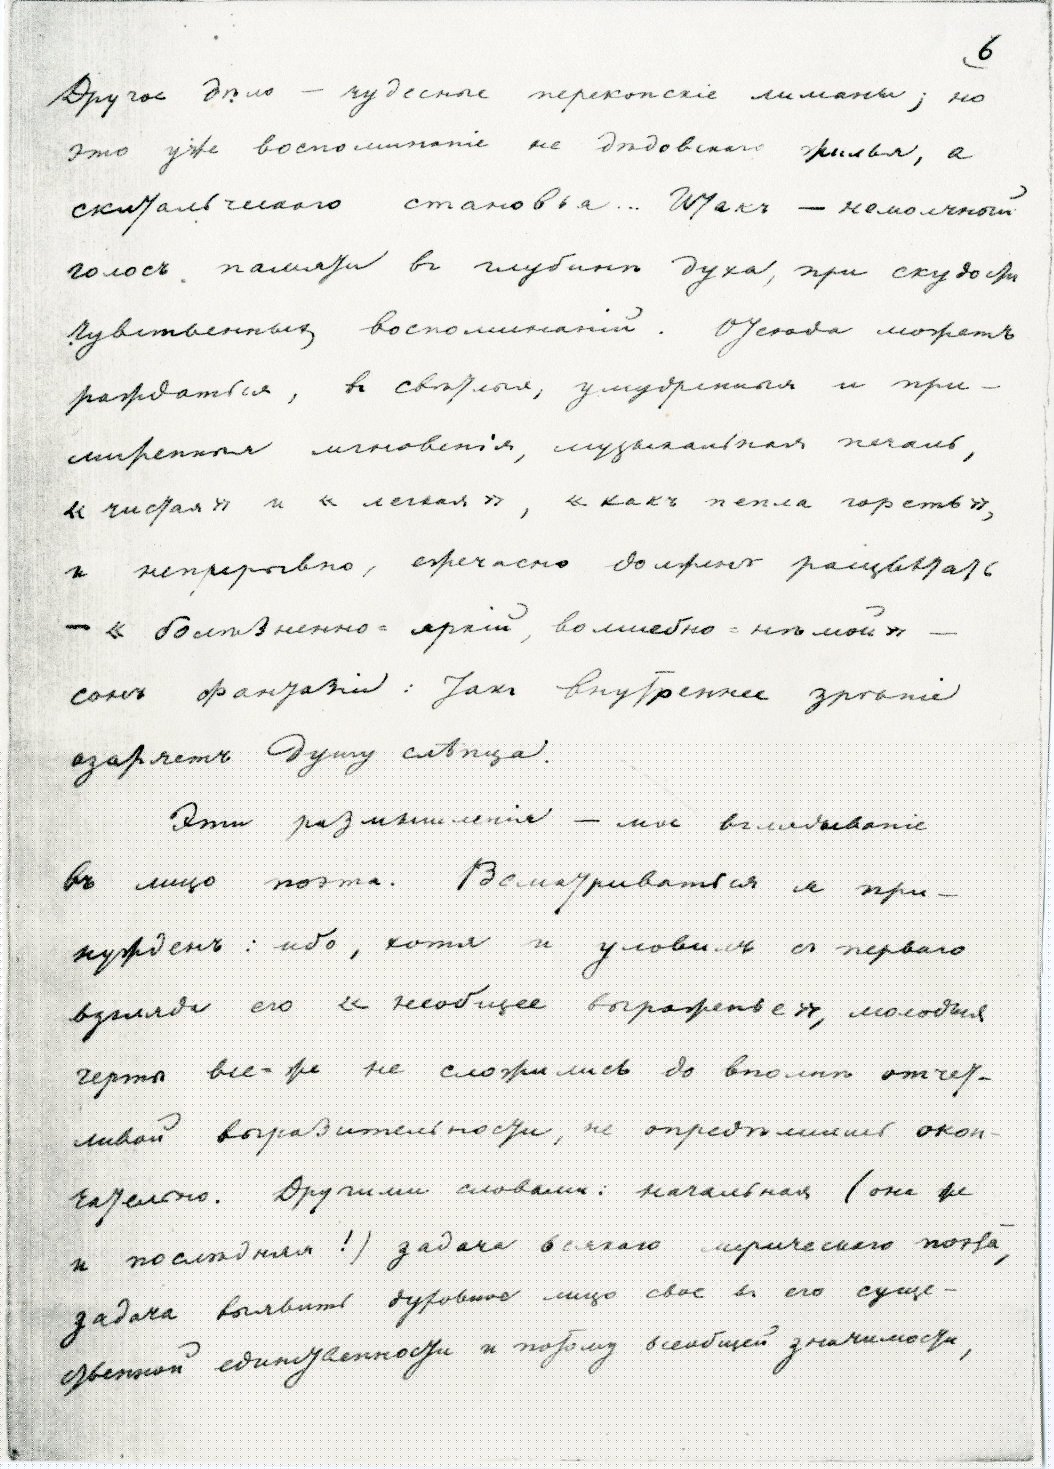 6
Другое дѣло — чудесные перекопскіе лиманы; но
это уже воспоминаніе не дѣдовскаго жилья, а
скитальческаго становья... Итакъ — немолчный
голосъ памяти въ глубинѣ духа, при скудости
чувственныхъ воспоминаній. Отсюда можетъ
рождаться, въ свѣтлыя, умудренныя и при-
миренныя мгновенія, музыкальная печаль,
«чистая» и «легкая», «какъ пепла горсть»,
и непрерывно, ежечасно долженъ расцвѣтать
— «болѣзненно-яркій, волшебно-нѣмой» —
сонъ фантазіи: такъ внутреннее зрѣніе
озаряетъ душу слѣпца.
Эти размышленія — мое вглядываніе
въ лицо поэта. Всматриваться я при-
нужденъ: ибо, хотя и уловилъ съ перваго
взгляда его «необщее выраженье», молодыя
черты все-же не сложились до вполнѣ отчет-
ливой выразительности, не опредѣлились окон-
чательно. Другими словами: начальная (она же
и послѣдняя!) задача всякаго лирическаго поэта,
задача выявить духовное лицо свое въ его суще-
ственной единственности и потому всеобщей значимости,